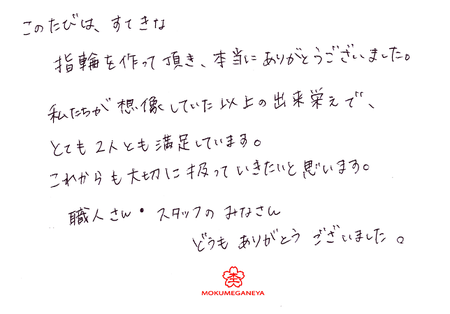 このたびは、すてきな
指輪を作って頂き、本当にありがとうございました。
私たちが想像していた以上の出来栄えで、
とても2人とも満足しています。
これからも大切に扱っていきたいと思います。
職人さん・スタッフのみなさん
どうもありがとうございました。
MOKUMEGANEYA